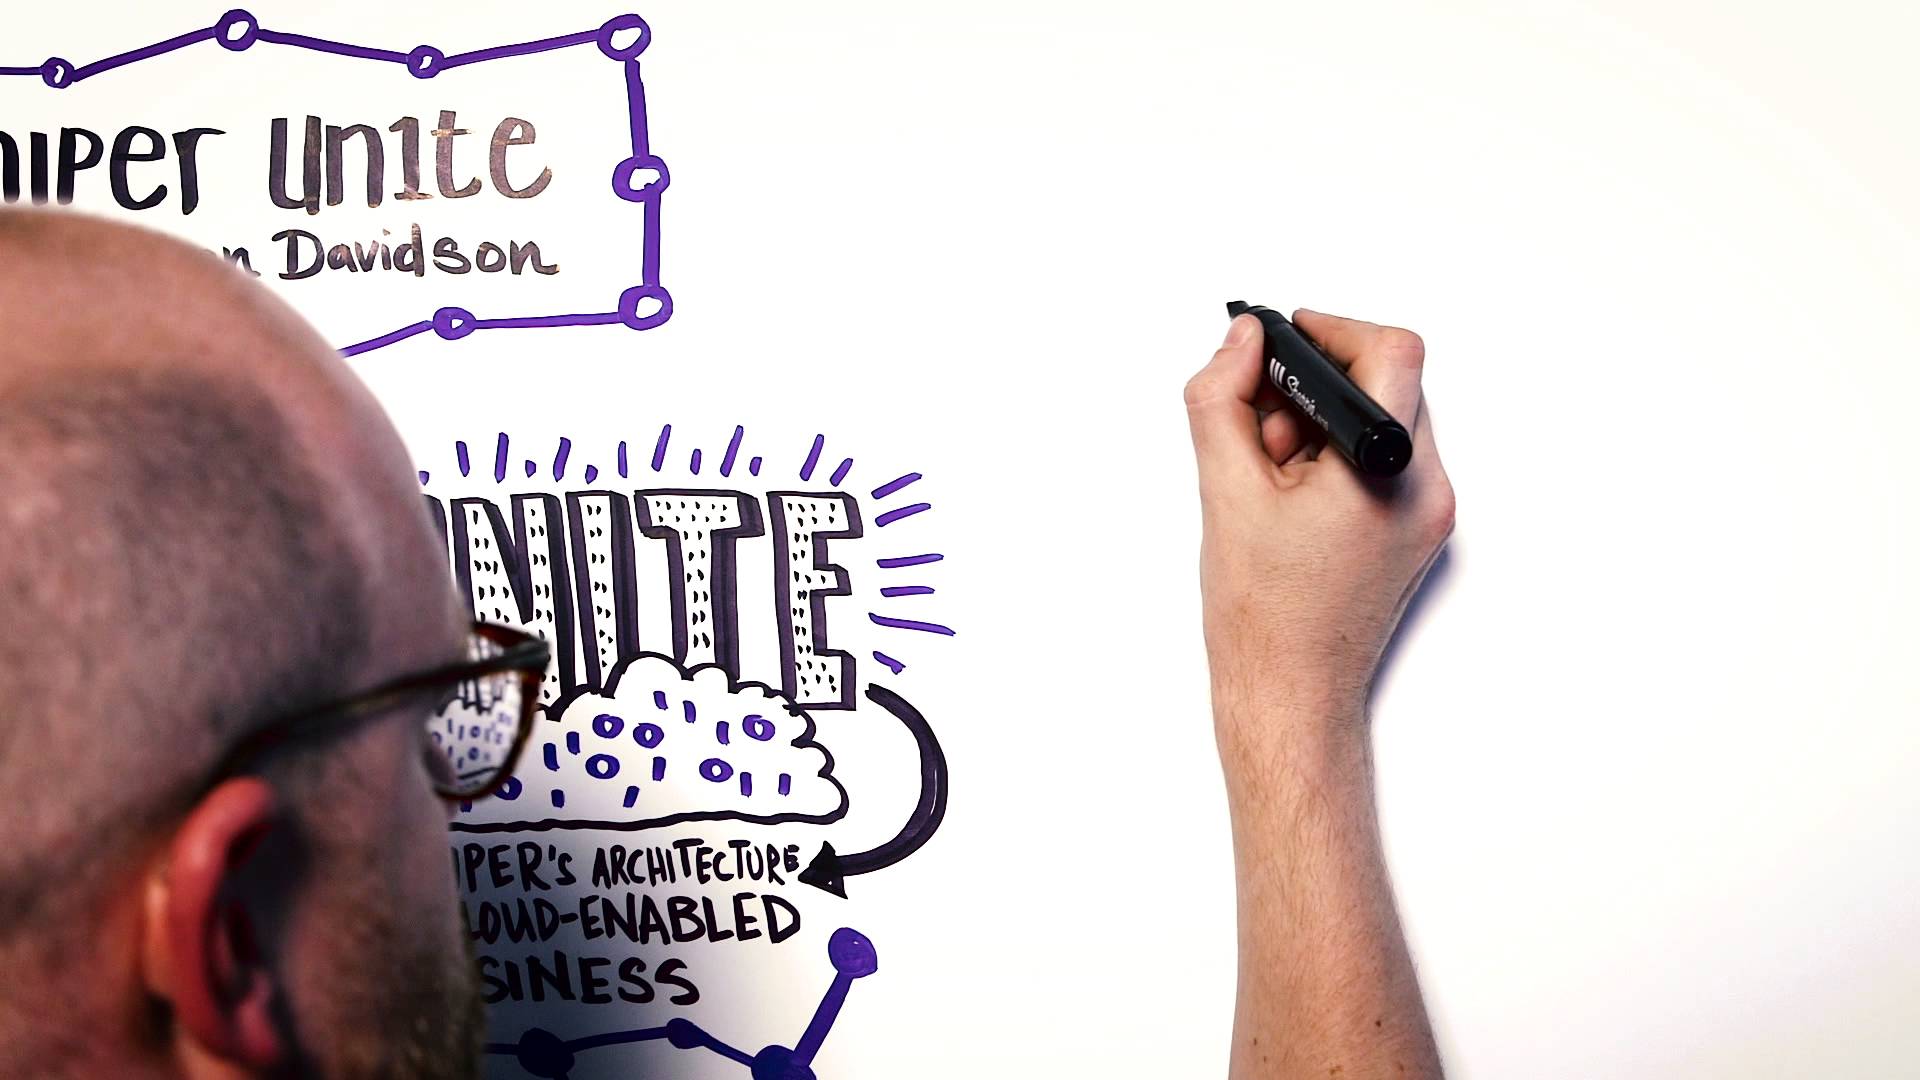 niper Un1te
on Davidson
NITE
IPER'S ARCHITECTURE
LOUD-ENABLED
SINESS
Sharpie